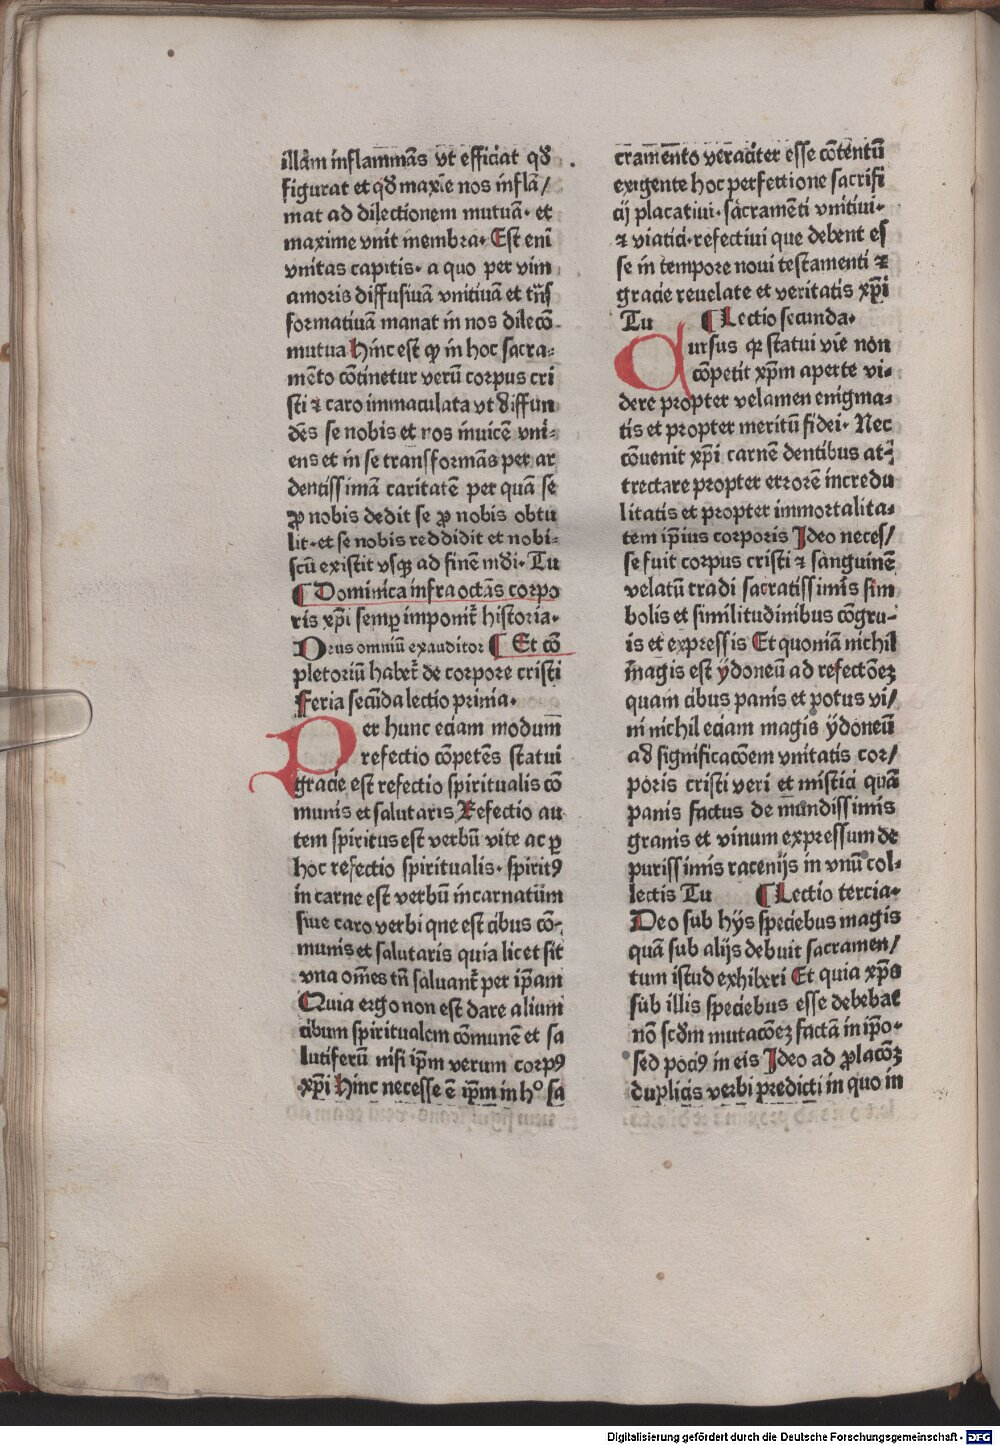 illam inflammãs vt efficiat qď
figurat et qď maxĩe nos inflã/
mat ad dilectionem mutuã· et
maxime vnit membra· Est eni
vnitas capitis· a quo per vim
amoris diffusiuã vnitiuã et trãs
formatiuã manat in nos dilecõ
mutua Hinc est ꝙ in hoc sacra⸗
mẽto cõtinetur verũ corpus cri
sti ⁊ caro immaculata vt diffun
dẽs se nobis et nos inuicẽ vni⸗
ens et in se transformãs per ar
dentissimã caritatẽ per quã se
ꝓ nobis dedit se ꝓ nobis obtu
lit· et se nobis reddidit et nobi⸗
scũ existit vsqꝫ ad finẽ mũdi· Tu
¶ Dominica infra octãs corpo
ris xp̃i semꝑ imponit̃ historia·
Orus omniũ exauditor ¶ Et cõ
pletoriũ habet̃ de corpore cristi
Feria secũda lectio prima·
Per hunc eciam modum
refectio cõpetẽs statui
gracie est refectio spiritualis cõ
munis et salutaris Refectio au
tem spiritus est verbũ vite ac ꝑ
hoc refectio spiritualis· spiritꝰ
in carne est verbũ incarnatũm
siue caro verbi que est cibus cõ⸗
munis et salutaris quia licet sit
vna om̃es tñ saluant̃ per ip̃am
Quia ergo non est dare alium
cibum spiritualem cõmunẽ et sa
lutiferũ nisi ip̃m verum corpꝰ
xp̃i Hinc necesse ẽ ip̃m in hº sa
cramento veraciter esse cõtentũ
exigente hoc perfectione sacrifi
cij placatiui· sacramẽti vnitiui⸗
⁊ viatici· refectiui que debent es
se in tempore noui testamenti ⁊
gracie reuelate et veritatis xp̃i
Tu ¶ Lectio secunda·
Rursus qꝛ statui vie non
cõpetit xp̃m aperte vi⸗
dere propter velamen enigma⸗
tis et propter meritũ fidei· Nec
cõuenit xp̃i carnẽ dentibus at⸗
trectare propter errorẽ incredu
litatis et propter immortalita⸗
tem ip̃ius corporis Ideo neces/
se fuit corpus cristi ⁊ sanguinẽ
velatũ tradi sacratissimis sim
bolis et similitudinibus cõgru⸗
is et expressis Et quoniã nichil
magis est ydoneũ ad refectõeꝫ
quam cibus panis et potus vi/
ni nichil eciam magis ÿdoneũ
ad significacõem vnitatis cor/
poris cristi veri et mistici quã
panis factus de mundissimis
granis et vinum expressum de
purissimis racenijs in vnũ col⸗
lectis Tu ¶ Lectio tercia·
Deo sub hÿs speciebus magis
quã sub alijs debuit sacramen/
tum istud exhiberi Et quia xp̃s
sub illis speciebus esse debebat
nõ scďm mutacõeꝫ factã in ip̃o·
sed pociꝰ in eis Ideo ad ꝓlacõeꝫ
duplicis verbi predicti in quo in
Digitalisierung gefördert durch die Deutsche Forschungsgemeinschaft - DFG